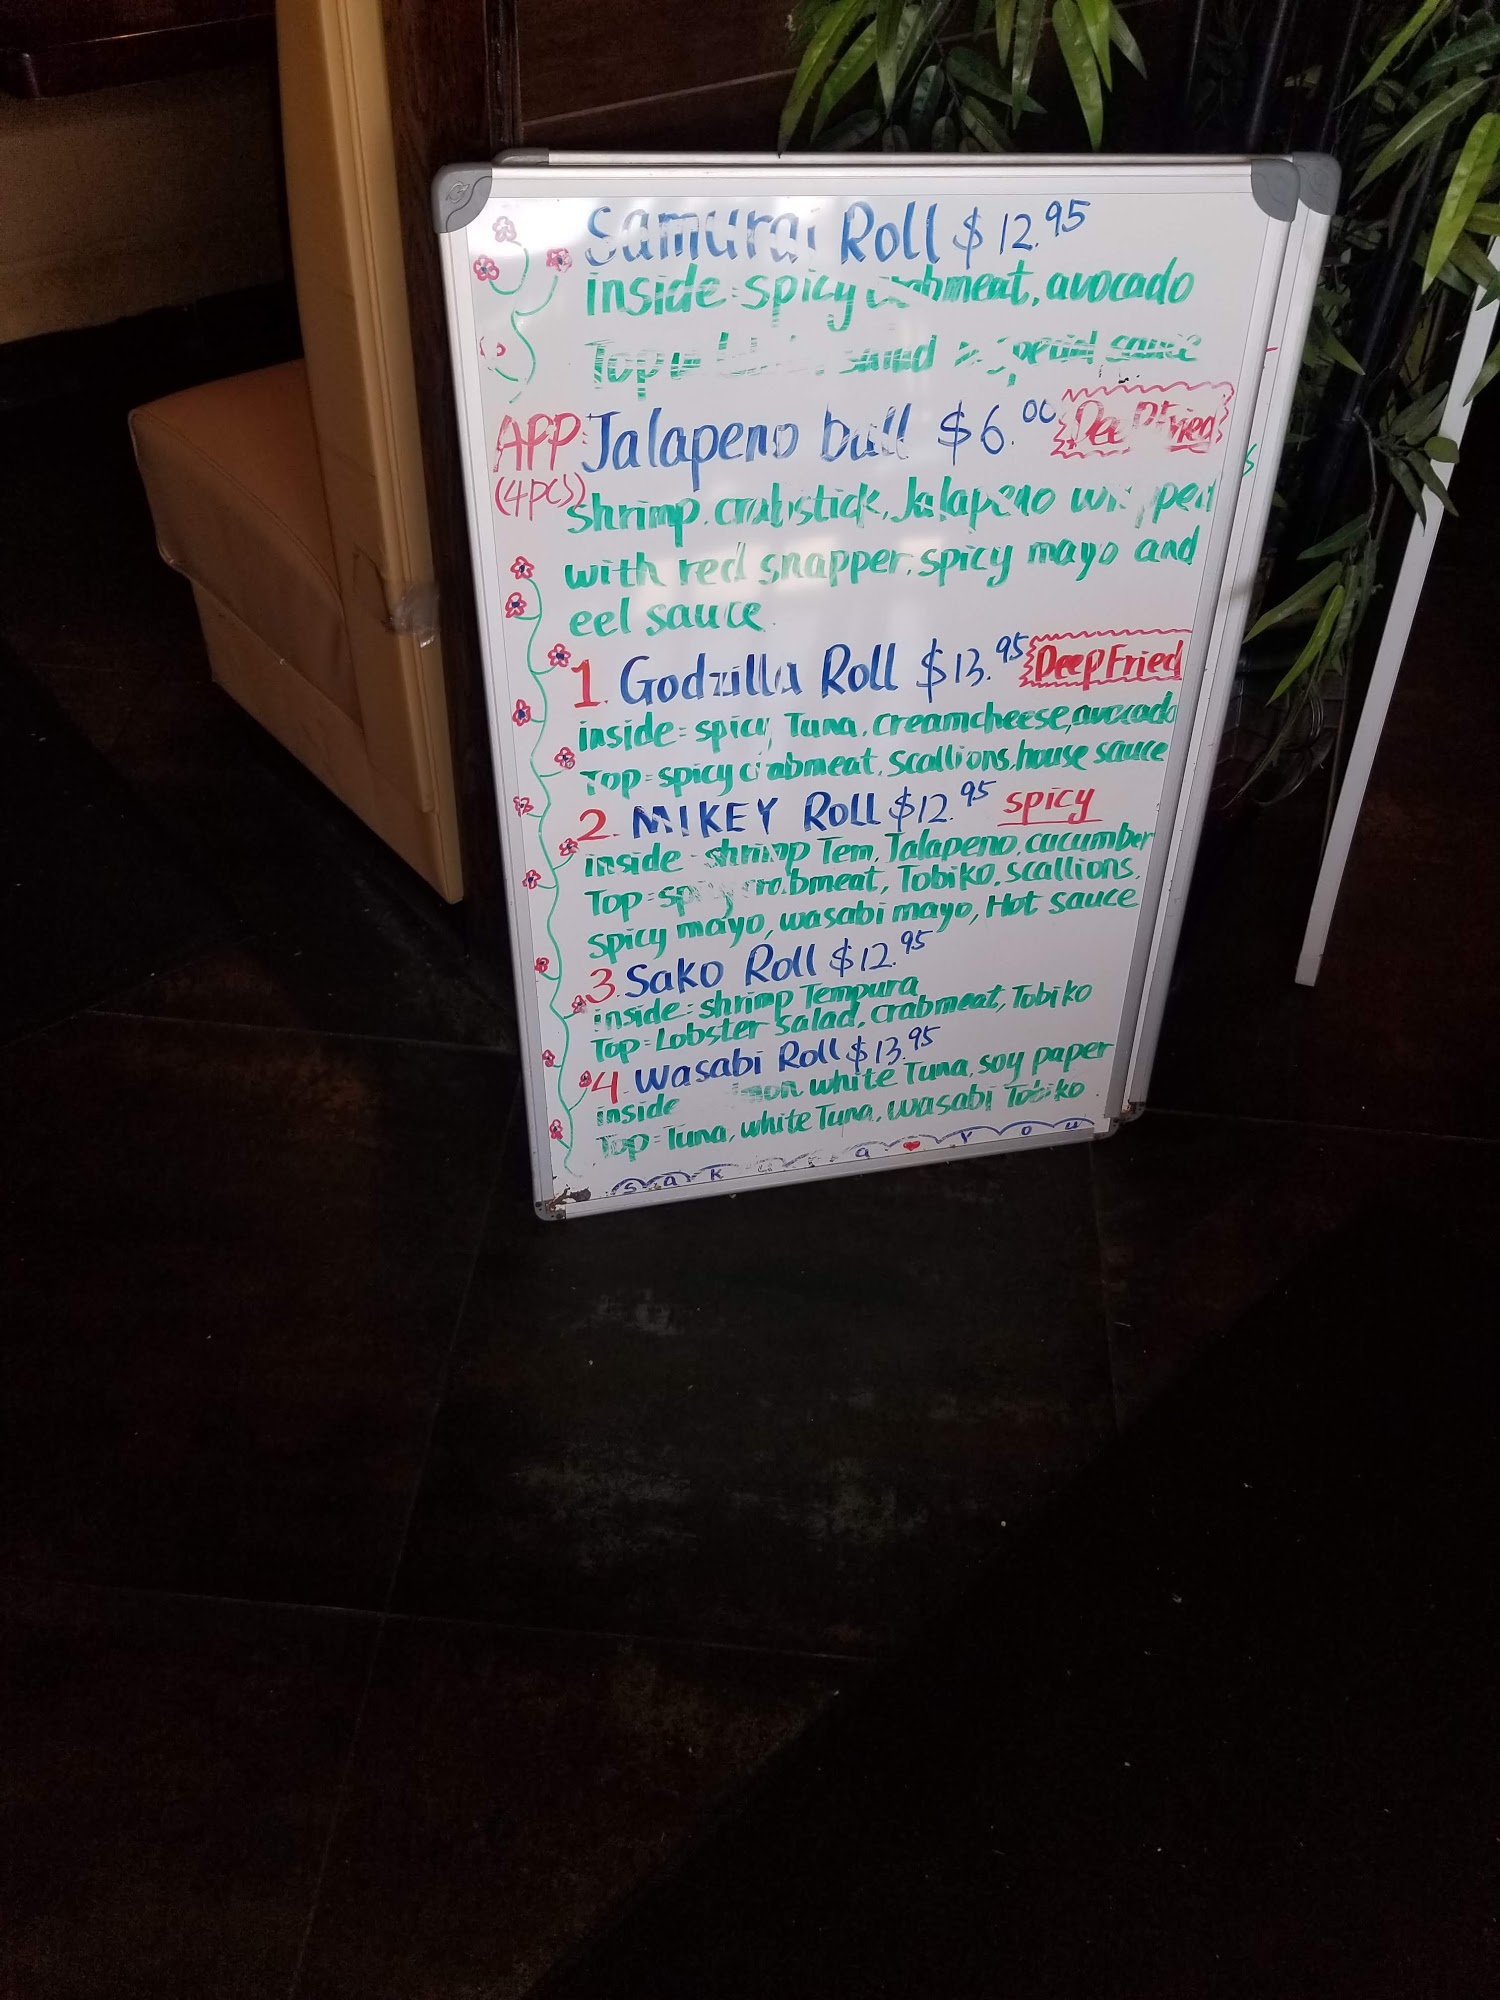 Samurai Roll $12.95
inside: spicy crabmeat, avocado
Top salad special sauce
APP: Jalapeno ball $6.00 Deep Fried
(4pcs) shrimp, crabstick, Jalapeno wrapped
with red snapper, spicy mayo and
eel sauce
1. Godzilla Roll $13.95 Deep Fried
inside: spicy Tuna, creamcheese, avocado
Top: spicy crabmeat, scallions, house sauce
2. MIKEY Roll $12.95 spicy
inside: shrimp Tem, Jalapeno, cucumber
Top: spicy crabmeat, Tobiko, scallions,
spicy mayo, wasabi mayo, Hot sauce
3. Sako Roll $12.95
inside: shrimp Tempura
Top: Lobster salad, crabmeat, Tobiko
4. Wasabi Roll $13.95
inside white Tuna, soy paper
Top: Tuna, white Tuna, wasabi Tobiko
sakura ♥ you